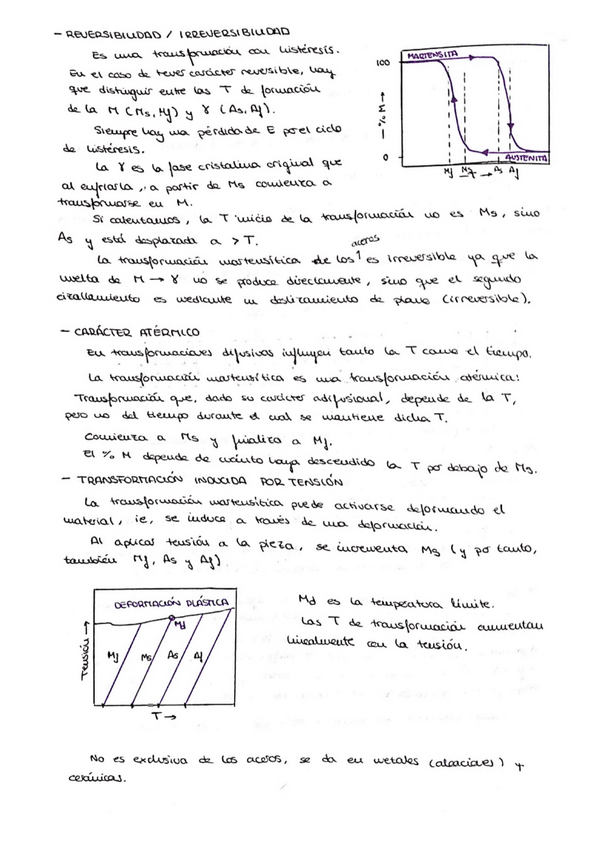 - REVERSIBILIDAD / IRREVERSIBILIDAD
Es una transformación con histéresis.
En el caso de tener carácter reversible, hay
que distinguir entre las T de formación
de la M (Ms, Mf) y γ (As, Af).
Siempre hay una pérdida de E por el ciclo
de histéresis.
La γ es la fase cristalina original que
al enfriarla, a partir de Ms comienza a
transformarse en M.
Si calentamos, la T inicio de la transformación no es Ms, sino
As y está desplazada a > T.
aceros
La transformación martensítica de los es irreversible ya que la
vuelta de M → γ no se produce directamente, sino que el segundo
cizallamiento es mediante un deslizamiento de planos (irreversible).
MARTENSITA
100
% M →
0
AUSTENITA
Mf Ms T → As Af
- CARÁCTER ATÉRMICO
En transformaciones difusivas influyen tanto la T como el tiempo.
La transformación martensítica es una transformación atérmica:
Transformación que, dado su carácter adifusional, depende de la T,
pero no del tiempo durante el cual se mantiene dicha T.
Comienza a Ms y finaliza a Mf.
El % M depende de cuánto haya descendido la T por debajo de Ms.
- TRANSFORMACIÓN INDUCIDA POR TENSIÓN
La transformación martensítica puede activarse deformando el
material, ie, se induce a través de una deformación.
Al aplicar tensión a la pieza, se incrementa Ms (y por tanto,
también Mf, As y Af).
DEFORMACIÓN PLÁSTICA
Md
Tensión →
Mf Ms As Af
T →
Md es la temperatura límite.
Las T de transformación aumentan
linealmente con la tensión.
No es exclusiva de los aceros, se da en metales (aleaciones) y
cerámicas.